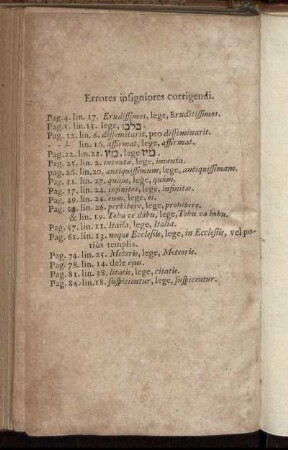 Errores insigniores corrigendi.
Pag. 4. lin. 17. Erudissimos, lege, Eruditissimos.
Pag. lin. 15. lege,
Pag. 12. lin. 6. dissemitaris, pro disseminarit.
lin. 16. uffirmat, lege, affirmat.
Pag. 22. lin. 21. lege
pag. 25. lin. 2. invento, lege, inventa.
pag. 26. lin. 20. antiquissimum, lege, antiquissimam.
Pag. 31. lin. 27. quam, lege, quum.
Pag. 37. lin. 24. infinitos, lege, infinitas.
Pag. 49. lin. 24. eum, lege, ei.
Pag. lin. 26. perhibere, lege, prohibere.
& lin. 19. Tohu ve dabu, lege, Tohu va bohu.
Pag. 57. lin. 11. Itaila, lege, Italia.
Pag. 61. lin. 13. neque Ecclesiæ, lege, in Ecclesiæ, vel potius templis.
Pag. 74. lin. 25. Metoriæ, lege, Meteoriæ.
Pag. 78. lin. 14. dele ejus.
Pag. 81. lin. 38. litatis, lege, citatis.
Pag. 84. lin. 18. suspicientur, lege, suspicentur.